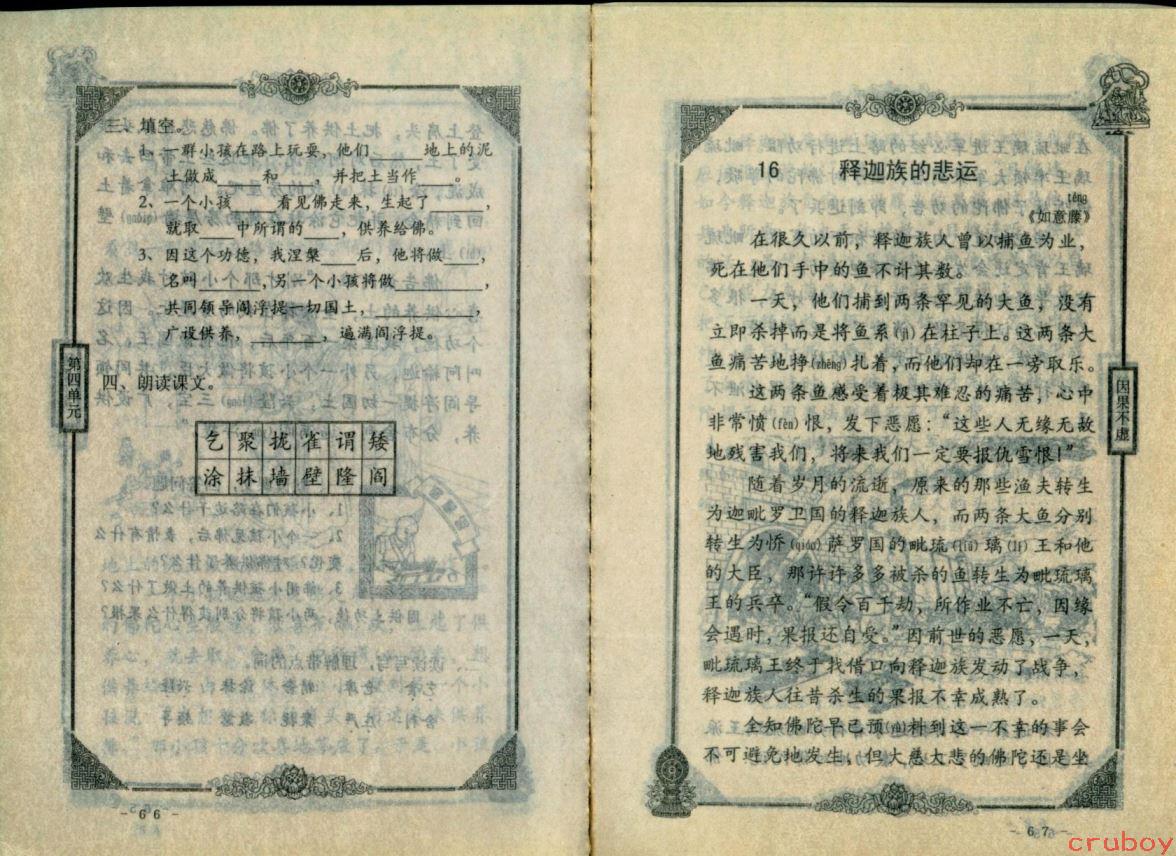 三、填空。
1、一群小孩在路上玩耍，他们____地上的泥
土做成____和____并把土当作____。
2、一个小孩____看见佛走来，生起了____，
就取____中所谓的____，供养给佛。
3、因这个功德，我涅槃____后，他将做____，
名叫____,另一个小孩将做____，
共同领导阎浮提一切国土，____，
广设供养，____，遍满阎浮提。
四、朗读课文。
乞聚拢雀谓矮
涂抹墙壁隆阎
第四单元
- 66 -
16 释迦族的悲运
téng
《如意藤》
在很久以前，释迦族人曾以捕鱼为业，
死在他们手中的鱼不计其数。
一天，他们捕到两条罕见的大鱼，没有
立即杀掉而是将鱼系(jì)在柱子上。这两条大
鱼痛苦地挣(zhēng)扎着，而他们却在一旁取乐。
这两条鱼感受着极其难忍的痛苦，心中
非常愤(fèn)恨，发下恶愿：“这些人无缘无故
地残害我们，将来我们一定要报仇雪恨！”
随着岁月的流逝，原来的那些渔夫转生
为迦毗罗卫国的释迦族人，而两条大鱼分别
转生为憍(qiáo)萨罗国的毗琉(liú)璃(lí)王和他
的大臣，那许许多多被杀的鱼转生为毗琉璃
王的兵卒。“假令百千劫，所作业不亡，因缘
会遇时，果报还自受。”因前世的恶愿，一天，
毗琉璃王终于找借口向释迦族发动了战争，
释迦族人往昔杀生的果报不幸成熟了。
全知佛陀早已预(yù)料到这一不幸的事会
不可避免地发生，但大慈大悲的佛陀还是坐
因果不虚
- 67 -
cruboy